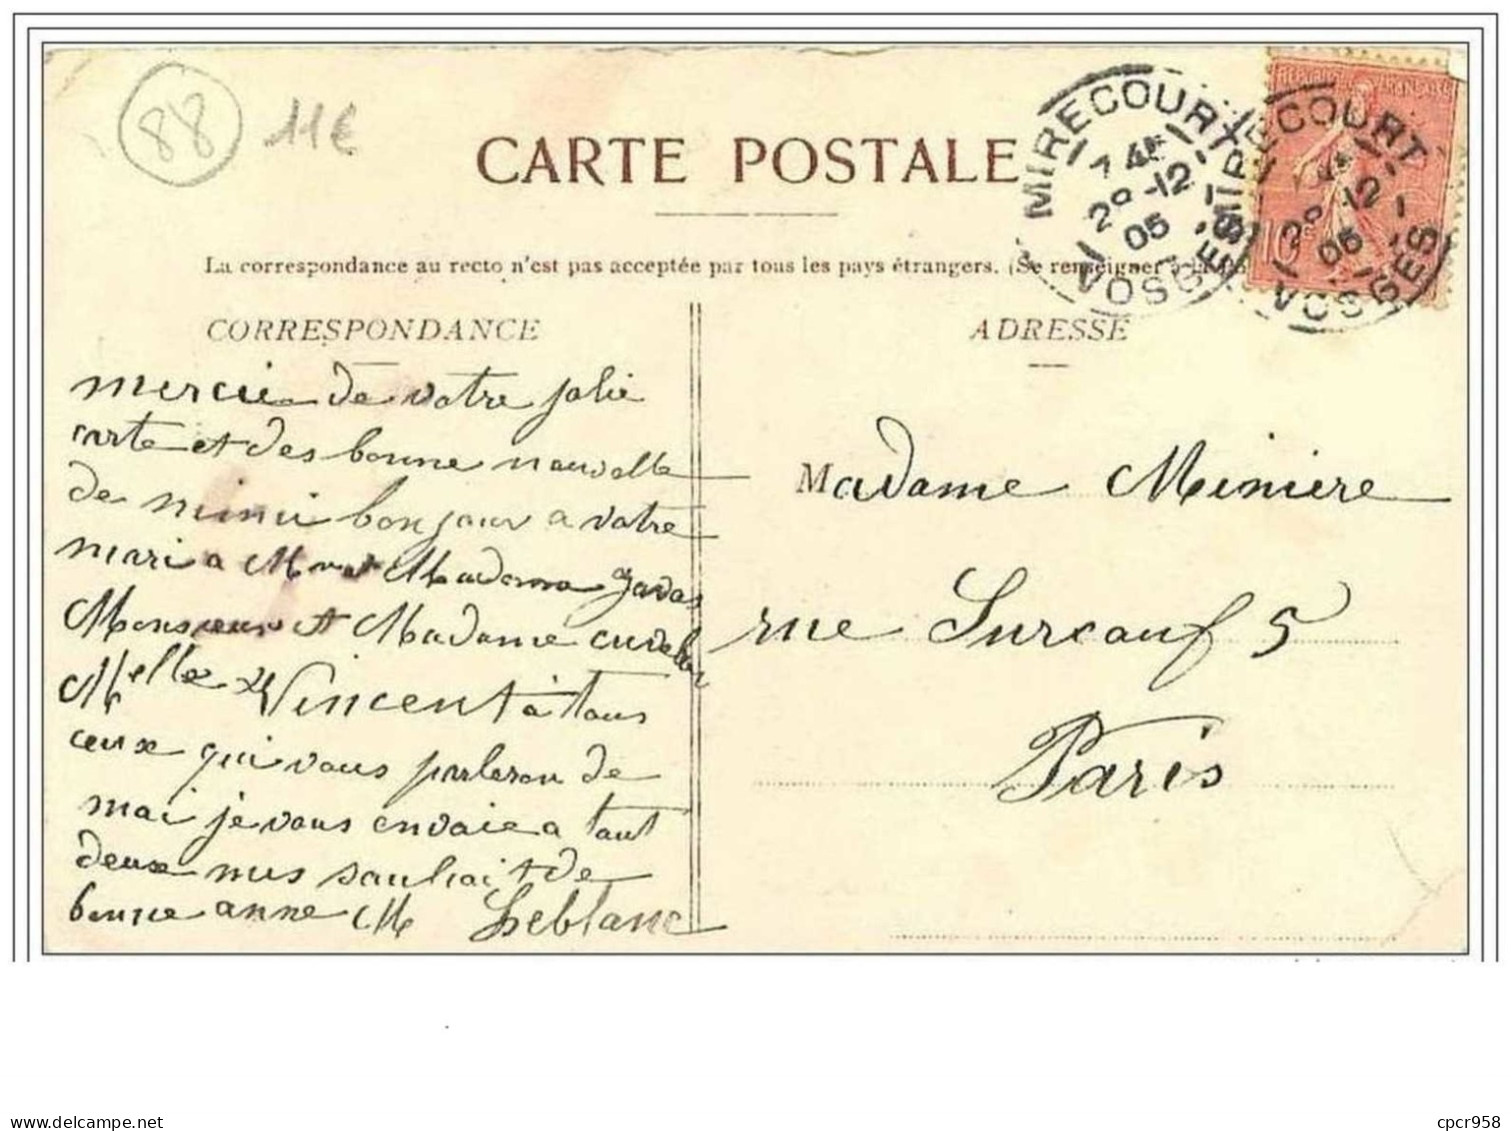 88
11€
CARTE POSTALE
MIRECOURT
29-12
05
VOSGES
MIRECOURT
29-12
05
VOSGES
REPUBLIQUE FRANÇAISE
10
La correspondance au recto n'est pas acceptée par tous les pays étrangers. (Se renseigner à la
CORRESPONDANCE
mercie de votre jolie
carte et des bonne nouvelle
de mimi bonjour a votre
mari a Mr et Madame
Monsieur et Madame
Melle Vincent à tous
ceux qui vous parleron de
moi je vous envoie a tout
deux mes souhait de
bonne anne M Leblanc
ADRESSE
Madame Miniere
rue Surcouf 5
Paris
cpcr958